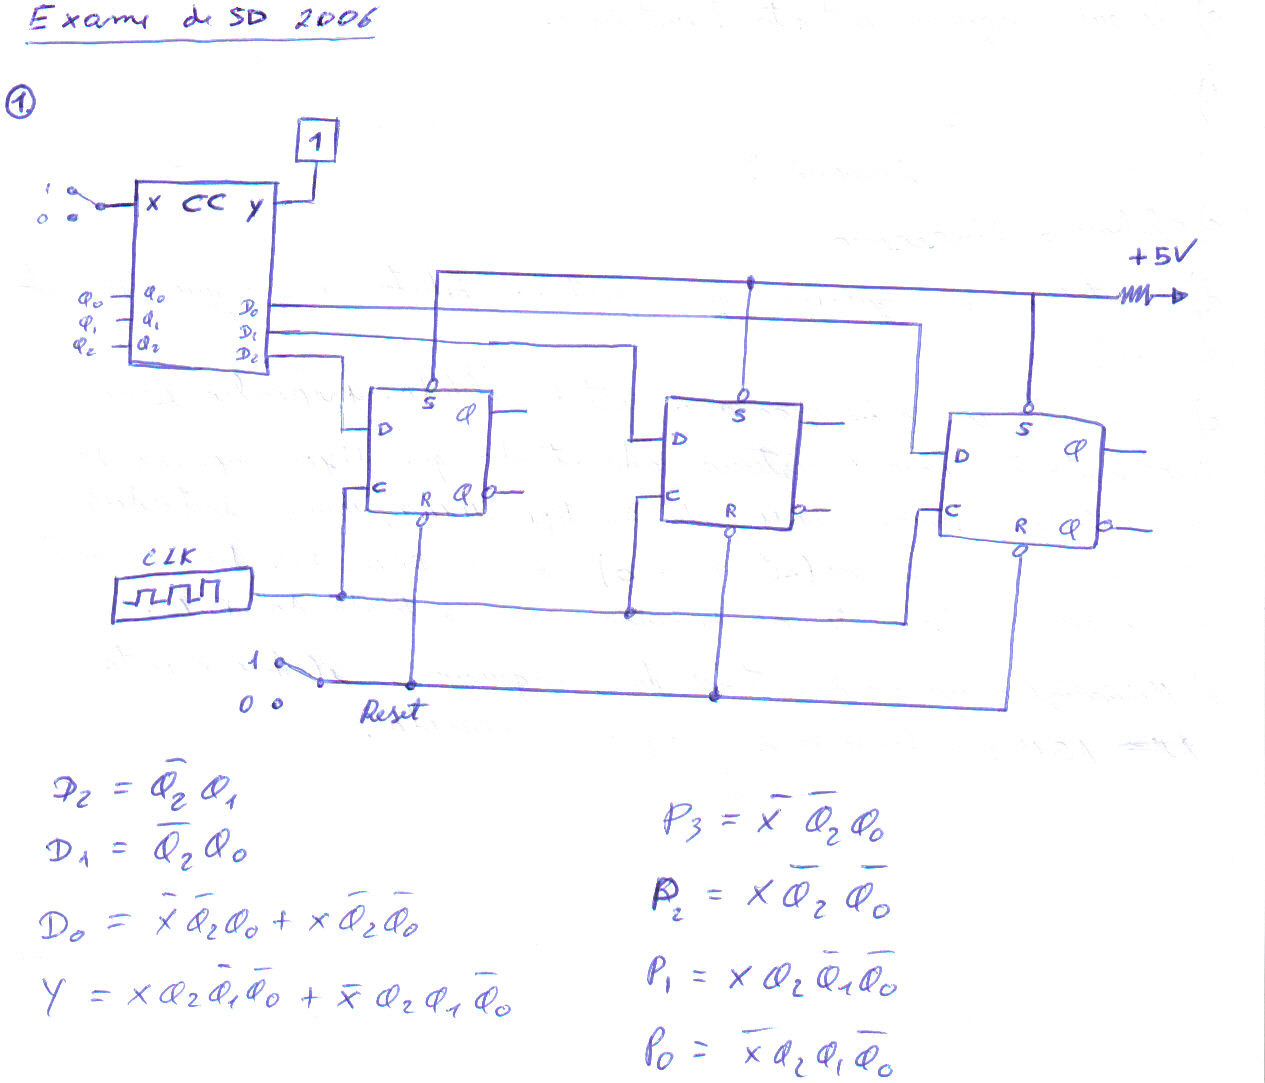 Exame de SD 2006
1.
1
1
0
X CC Y
Q₀ Q₀ D₀
Q₁ Q₁ D₁
Q₂ Q₂ D₂
+5V
S Q
D
C
R Q
S
D
C
R
S Q
D
C
R Q
CLK
1
0
Reset
D₂ = Q̄₂ Q₁
D₁ = Q̄₂ Q₀
D₀ = x̄ Q̄₂ Q₀ + x Q̄₂ Q̄₀
Y = x Q₂ Q̄₁ Q̄₀ + x̄ Q₂ Q₁ Q̄₀
P₃ = x̄ Q̄₂ Q₀
P₂ = x Q̄₂ Q̄₀
P₁ = x Q₂ Q̄₁ Q̄₀
P₀ = x̄ Q₂ Q₁ Q̄₀